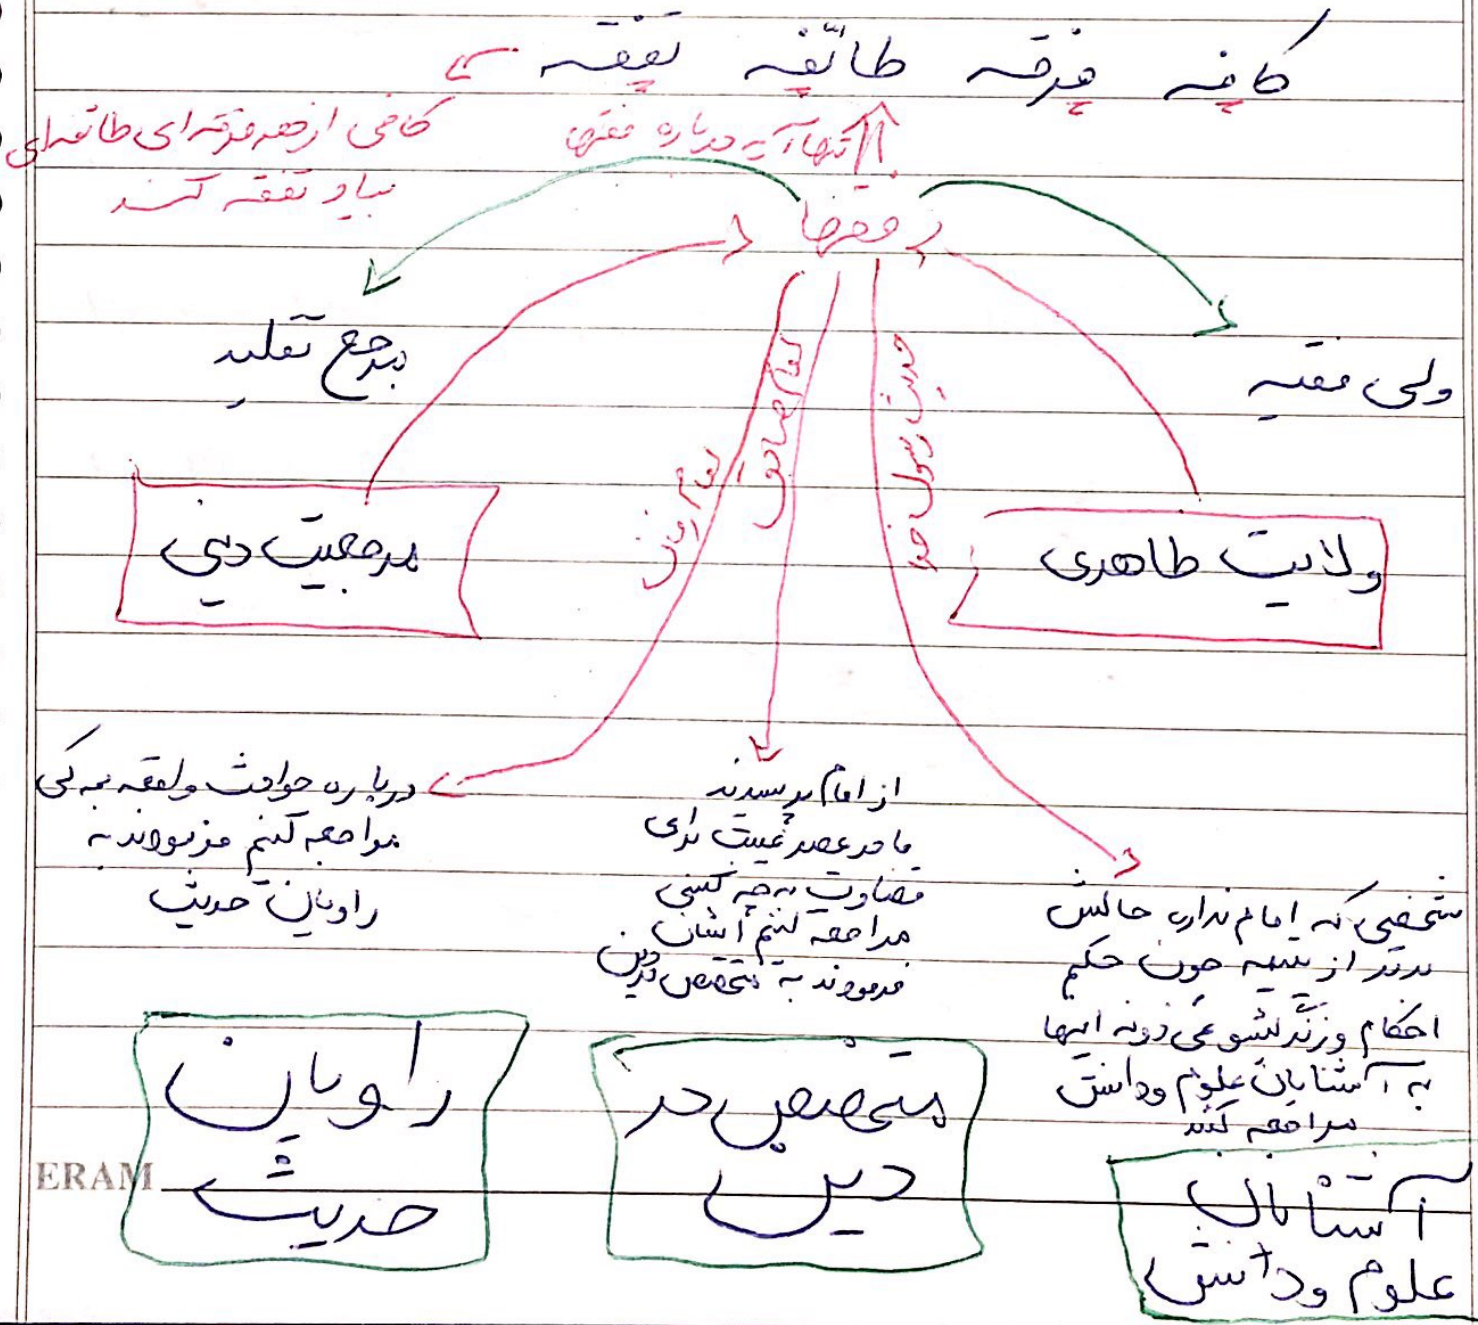 کافه فرقه طائفه تفقه
کافی از هر فرقه ای طائفه ای
بیاد تفقه کنند
تنها آیه درباره فقها
فقها
مرجع تقلید
ولی فقیه
امام زمان
امام صادق
حدیث رسول خدا
مرجعیت دینی
ولایت ظاهری
درباره حوادث واقعه به کی
مراجعه کنیم فرمودند به
راویان حدیث
از امام پرسیدند
ما در عصر غیبت برای
قضاوت به چه کسی
مراجعه کنیم ایشان
فرمودند به متخصص در دین
شخصی که امام نداره حالش
بدتر از یتیمه چون حکم
احکام و زندگیشو نمی دونه اینها
به آشنایان علوم و دانش
مراجعه کنند
راویان
حدیث
متخصص در
دین
آشنایان
علوم و دانش
ERAM